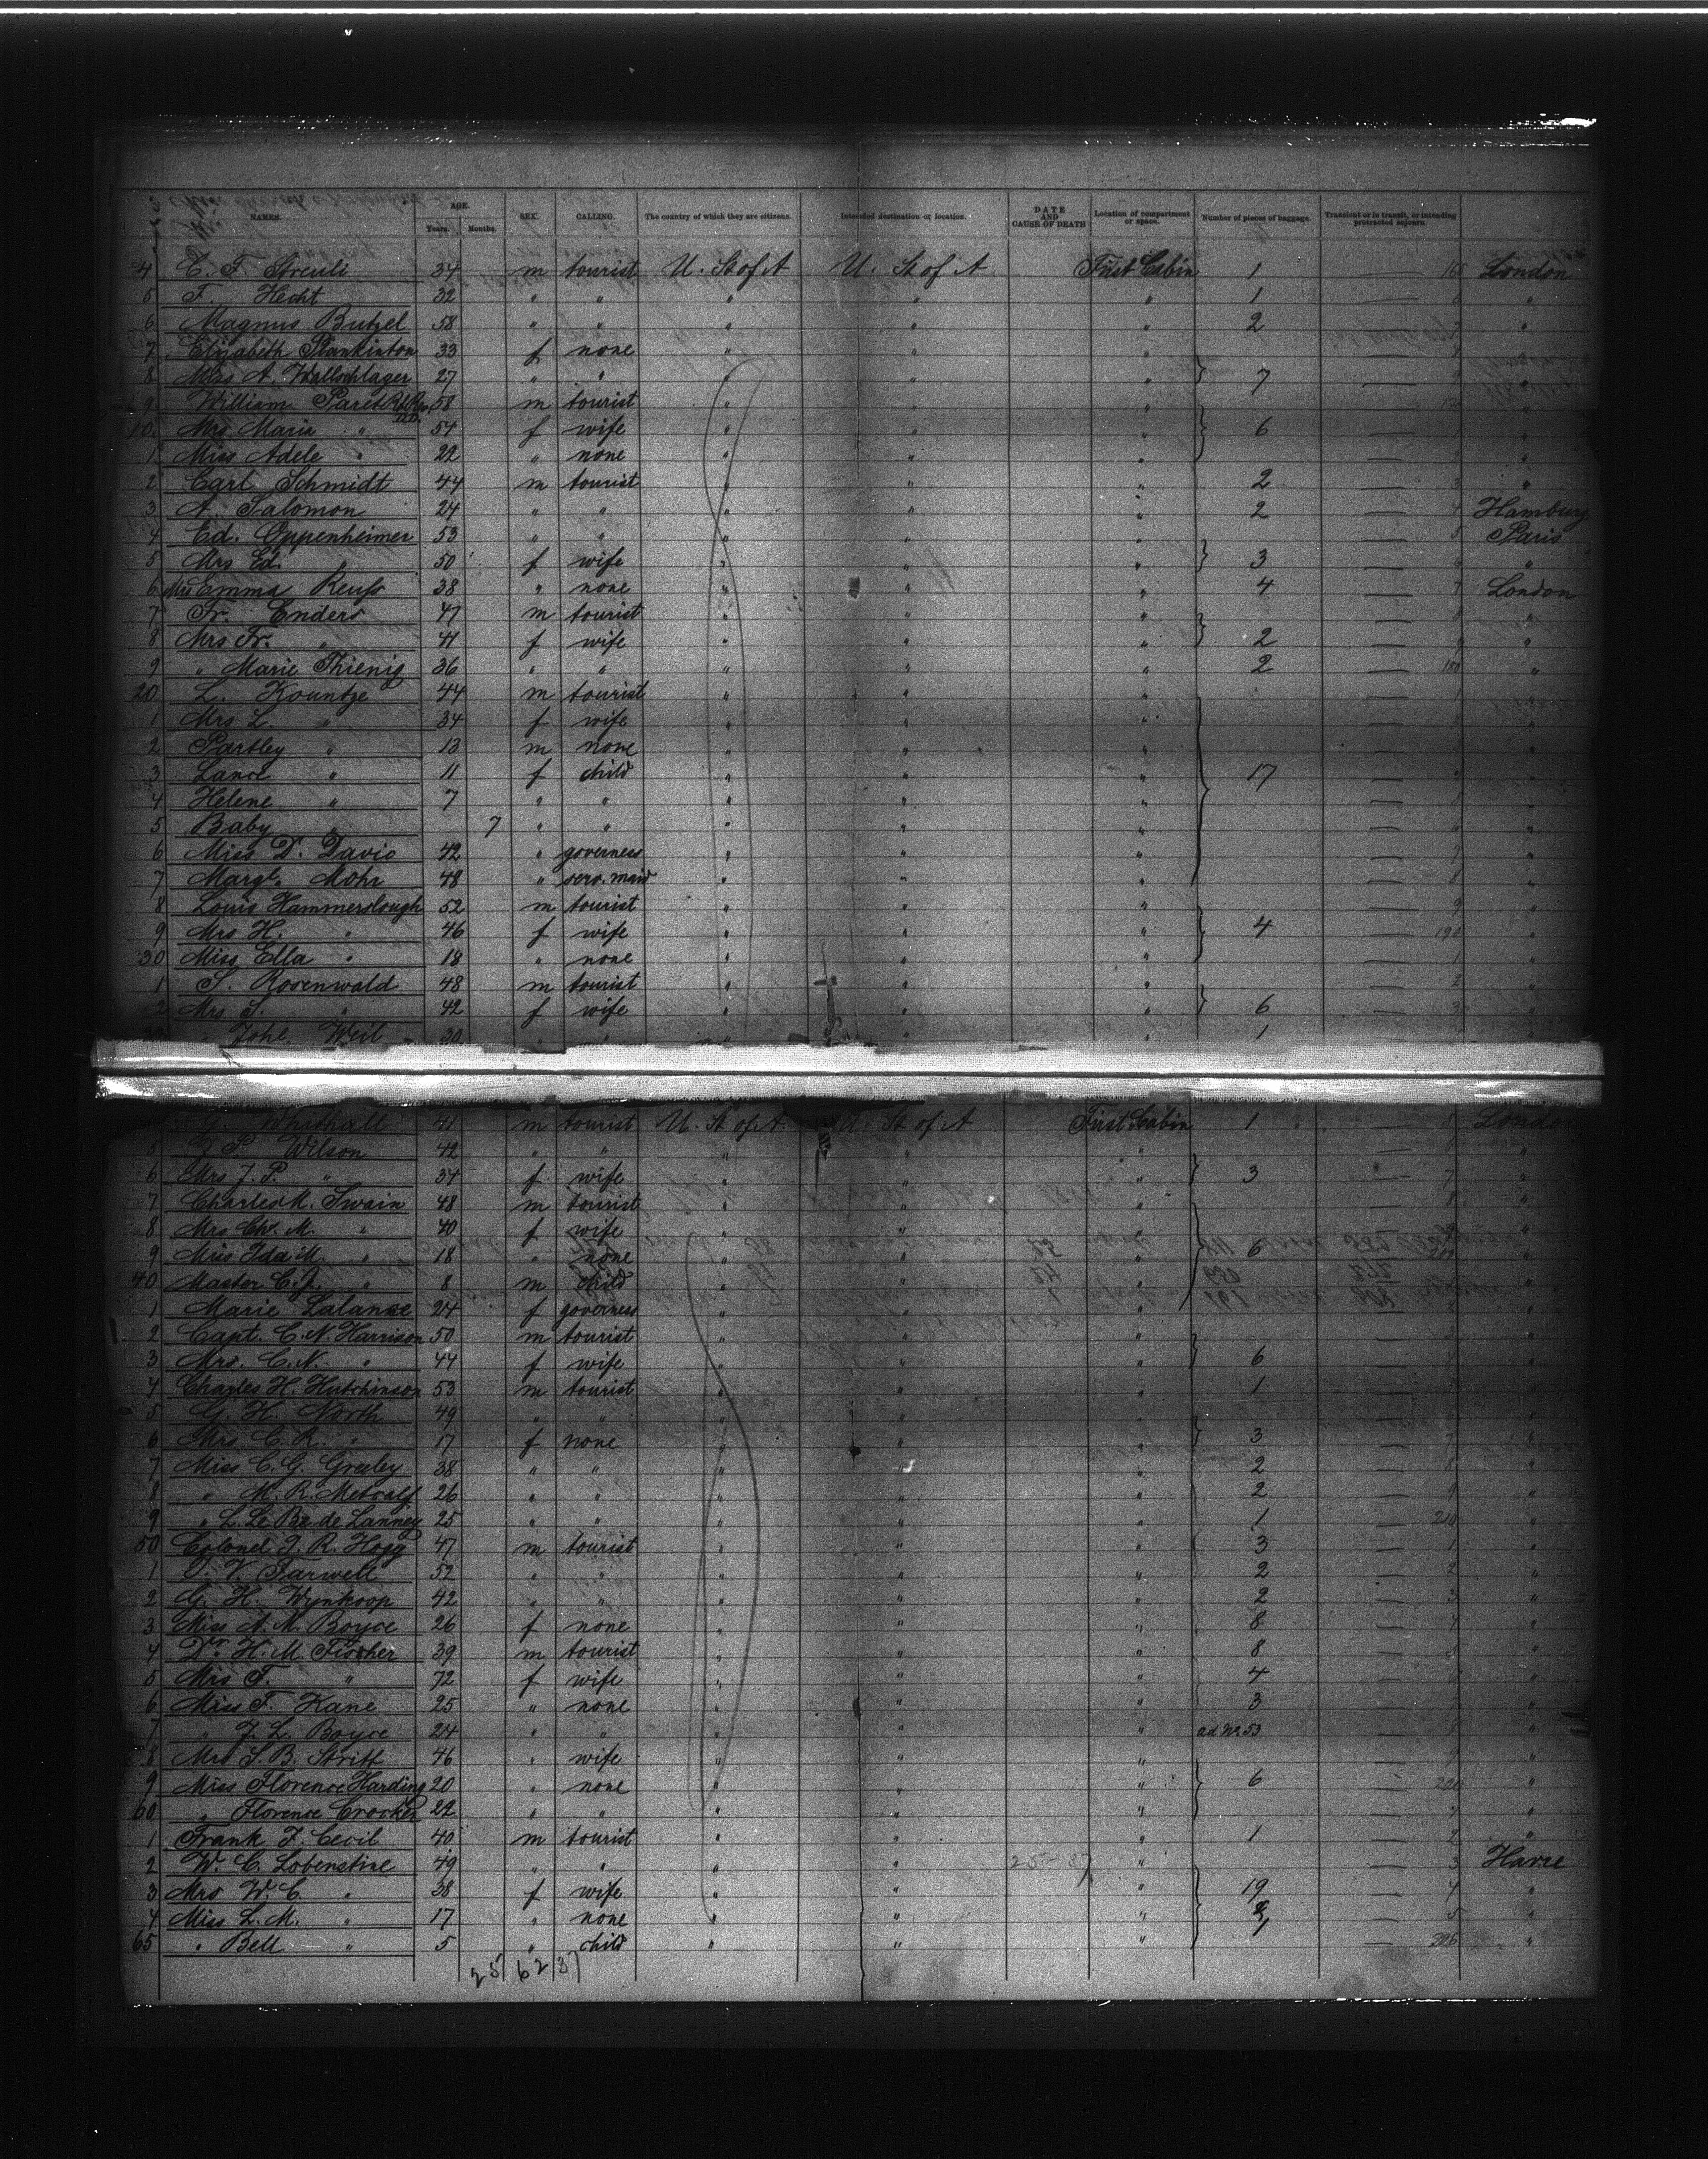 NAMES. AGE. SEX. CALLING. The country of which they are citizens. Intended destination or location. DATE AND CAUSE OF DEATH Location of compartment or space. Number of pieces of baggage. Transient or in transit, or intending protracted sojourn.
Years. Months.
4 C. F. Streuli 34 m tourist U. St of A U. St of A First Cabin 1 — London
5 F. Hecht 32 " " " " " 1 — "
6 Magnus Butzel 58 " " " " " 2 — "
7 Elizabeth Plankinton 33 f none " " " —
8 Miss A. Wallschlager 27 " " " " " } 7 — "
9 William Paret Rt. Rev. D.D. 58 m tourist " " " — "
10 Mrs Maria " 54 f wife " " " } 6 — "
1 Miss Adele " 22 " none " " " — "
2 Carl Schmidt 44 m tourist " " " 2 — 3 "
3 A. Salomon 24 " " " " " 2 — 4 Hamburg
4 Ed. Oppenheimer 53 " " " " " — 5 Paris
5 Mrs Ed. " 50 f wife " " " } 3 — 6 "
6 Mrs Emma Reuss 38 " none " " " 4 — 7 London
7 Fr. Enders 47 m tourist " " " — 8
8 Mrs Fr. " 41 f wife " " " } 2 — 9 "
9 " Marie Thienig 36 " " " " " 2 — 180 "
20 L. Kountze 44 m tourist " " " — 1
1 Mrs L. " 34 f wife " " " — "
2 Partley " 13 m none " " " — "
3 Lance " 11 f child " " " } 17 — "
4 Helene " 7 " " " " " — "
5 Baby " 7 " " " " " — "
6 Miss D. Davis 42 " governess " " " — 7 "
7 Margt. Mohr 48 " serv. maid " " " — 8 "
8 Louis Hammerslough 52 m tourist " " " — 9 "
9 Mrs H. " 46 f wife " " " } 4 — 190 "
30 Miss Ella " 18 " none " " " — 1 "
1 S. Rosenwald 48 m tourist " " " — 2 "
2 Mrs S. " 42 f wife " " " } 6 — 3 "
Weil 30 " " " " " 1
Whithall 41 m tourist U. St of A U. St of A First Cabin 1 — London
5 J. P. Wilson 42 " " " " " — 6 "
6 Mrs J. P. " 34 f wife " " " } 3 — 7 "
7 Charles M. Swain 48 m tourist " " " — 8 "
8 Mrs Chs. M. " 40 f wife " " " — "
9 Miss Ida M. " 18 " none " " " } 6 — "
40 Master C. J. " 8 m child " " " — "
1 Marie Lalanne 24 f governess " " " — "
2 Capt. C. N. Harrison 50 m tourist " " " — "
3 Mrs. C. N. " 44 f wife " " " } 6 — 4 "
4 Charles H. Hutchinson 53 m tourist " " " 1 — "
5 G. H. North 49 " " " " " — "
6 Mrs C. R. " 17 f none " " " } 3 — 7 "
7 Miss C. G. Greeley 38 " " " " " 2 — 8 "
8 " M. R. Metcalf 26 " " " " " 2 — 9 "
9 " L. Le Bz. de Lanney 25 " " " " " 1 — 210 "
50 Colonel T. R. Hogg 47 m tourist " " " 3 — 1 "
1 O. V. Farwell 52 " " " " " 2 — 2 "
2 G. H. Wynkoop 42 " " " " " 2 — 3 "
3 Miss A. M. Boyce 26 f none " " " 8 — 4 "
4 Dr. H. M. Fischer 39 m tourist " " " 8 — 5 "
5 Mrs F. " 72 f wife " " " 4 — "
6 Miss F. Kane 25 " none " " " 3 — 7 "
7 " J. L. Boyce 24 " " " " " ad No. 53 — "
8 Mrs S. B. 46 " wife " " " — "
9 Miss Florence Harding 20 " none " " " } 6 — 220 "
60 " Florence Crocker 22 " " " " " — "
1 Frank J. Cecil 40 m tourist " " " 1 — 2 "
2 W. C. Lobenstine 49 " " " " 25-37 " — 3 Havre
3 Mrs W. C. " 38 f wife " " " } 19 — 4 "
4 Miss L. M. " 17 " none " " " — 5 "
65 " Bell " 5 " child " " " — 226 "
25 62 3